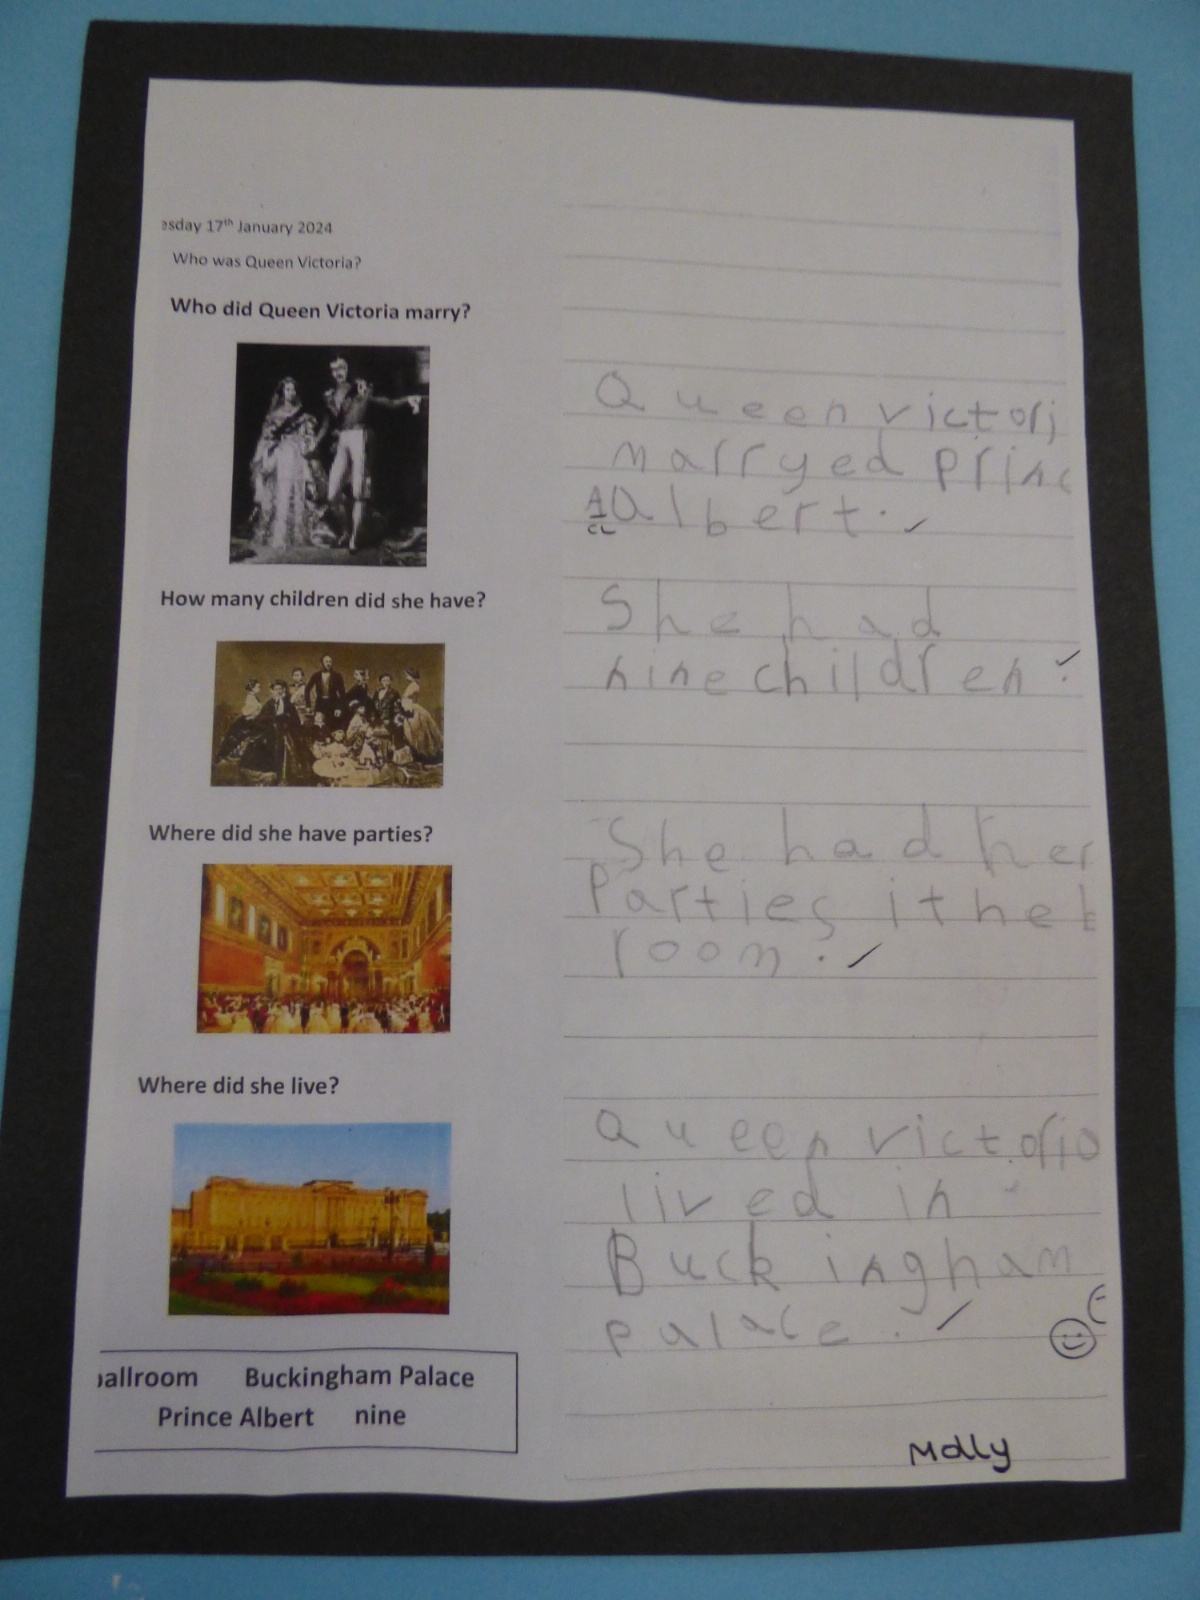 esday 17th January 2024
Who was Queen Victoria?
Who did Queen Victoria marry?
Queen victori
marryed princ
A albert.
CL
How many children did she have?
She had
nine children.
Where did she have parties?
She had her
Parties ithe b
room.
Where did she live?
Queen victoria
lived in
Buckingham
palace.
ballroom Buckingham Palace
Prince Albert nine
Molly